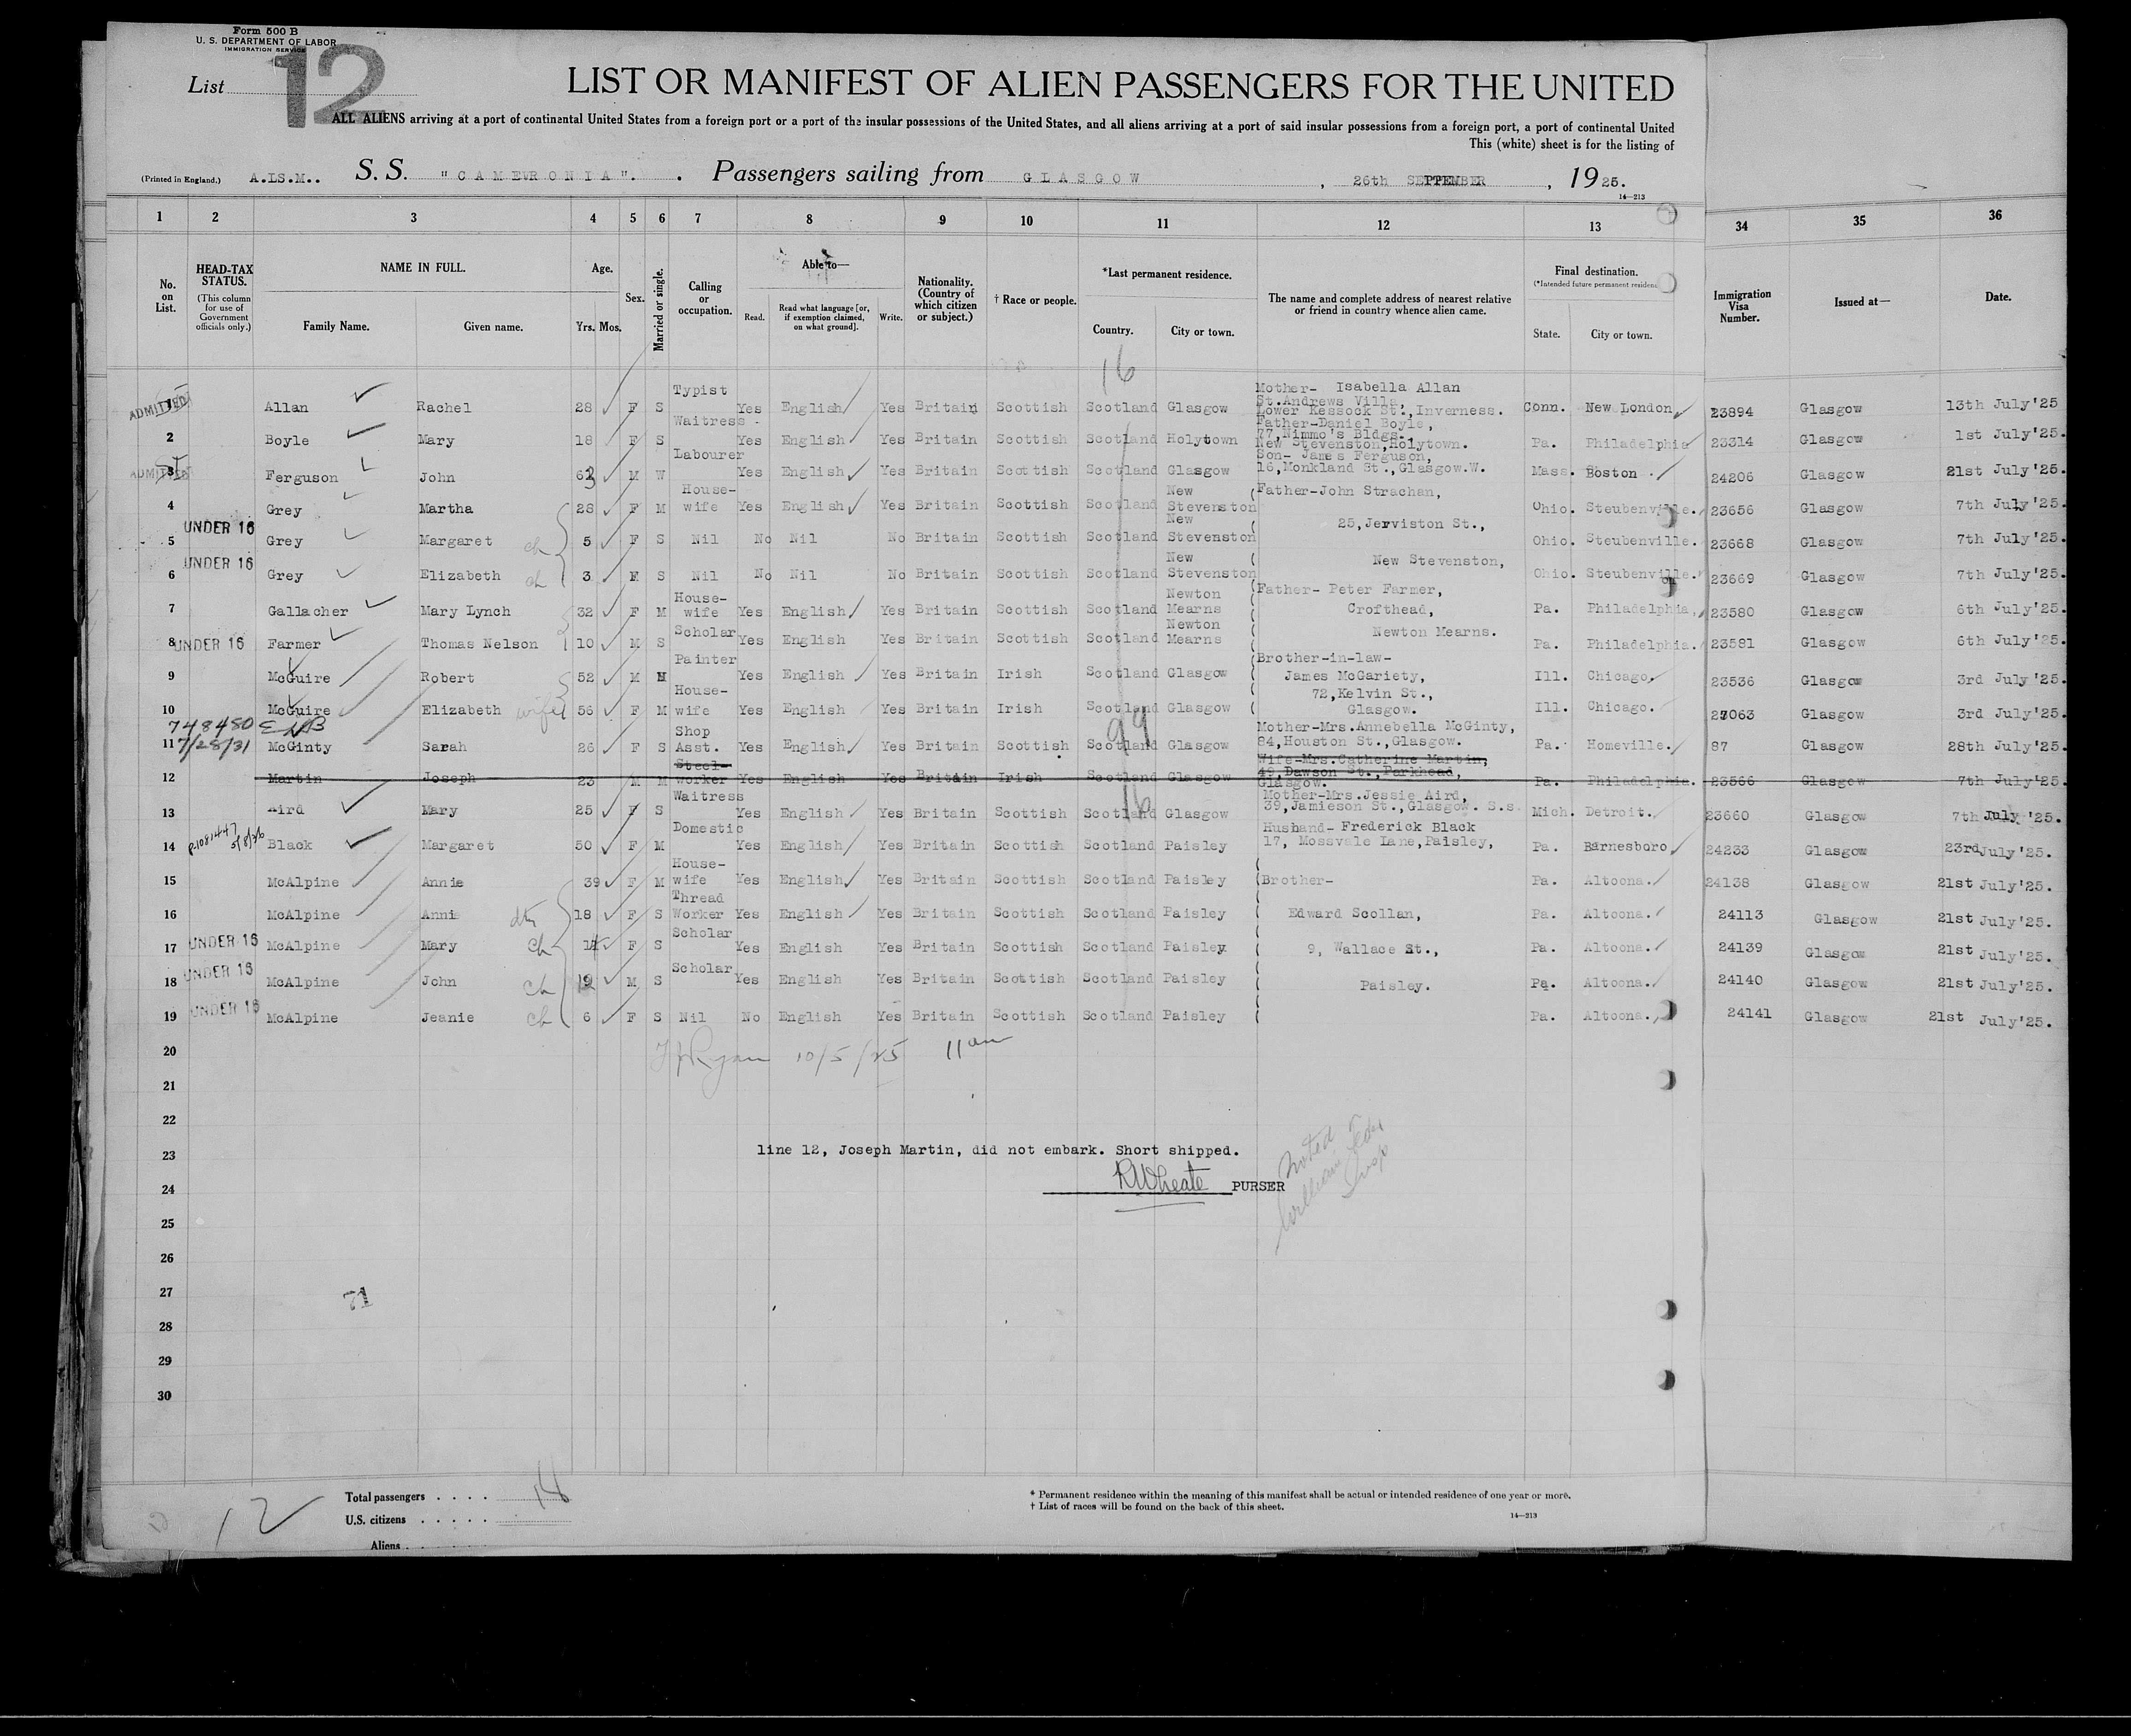 Form 500 B
U. S. DEPARTMENT OF LABOR
IMMIGRATION SERVICE
List 12
LIST OR MANIFEST OF ALIEN PASSENGERS FOR THE UNITED
ALL ALIENS arriving at a port of continental United States from a foreign port or a port of the insular possessions of the United States, and all aliens arriving at a port of said insular possessions from a foreign port, a port of continental United
This (white) sheet is for the listing of
(Printed in England.) S. S. "CAMERONIA". Passengers sailing from GLASGOW, 26th SEPTEMBER, 1925.
14—213
1 2 3 4 5 6 7 8 9 10 11 12 13 34 35 36
No. on List.
HEAD-TAX STATUS.
(This column for use of Government officials only.)
NAME IN FULL.
Family Name. Given name.
Age.
Yrs. Mos.
Sex.
Married or single.
Calling or occupation.
Able to—
Read. Read what language [or, if exemption claimed, on what ground]. Write.
Nationality. (Country of which citizen or subject.)
† Race or people.
*Last permanent residence.
Country. City or town.
The name and complete address of nearest relative or friend in country whence alien came.
Final destination.
(*Intended future permanent residence
State. City or town.
Immigration Visa Number.
Issued at—
Date.
16
ADMITTED 1 Allan Rachel 28 F S Typist Yes English Yes Britain Scottish Scotland Glasgow Mother- Isabella Allan St.Andrews Villa, Lower Kessock St., Inverness. Conn. New London 23894 Glasgow 13th July'25
2 Boyle Mary 18 F S Waitress Yes English Yes Britain Scottish Scotland Holytown Father-Daniel Boyle, 77,Nimmo's Bldgs., New Stevenston,Holytown. Pa. Philadelphia 23314 Glasgow 1st July'25.
ADMITTED 3 Ferguson John 63 M W Labourer Yes English Yes Britain Scottish Scotland Glasgow Son- James Ferguson, 16,Monkland St.,Glasgow.W. Mass. Boston. 24206 Glasgow 21st July'25.
4 Grey Martha 28 F M House-wife Yes English Yes Britain Scottish Scotland New Stevenston Father-John Strachan, Ohio. Steubenville. 23656 Glasgow 7th July'25.
UNDER 16 5 Grey Margaret ch 5 F S Nil No Nil No Britain Scottish Scotland New Stevenston 25,Jerviston St., Ohio. Steubenville. 23668 Glasgow 7th July'25.
UNDER 16 6 Grey Elizabeth ch 3 F S Nil No Nil No Britain Scottish Scotland New Stevenston New Stevenston, Ohio. Steubenville. 23669 Glasgow 7th July'25.
7 Gallacher Mary Lynch 32 F M House-wife Yes English Yes Britain Scottish Scotland Newton Mearns Father- Peter Farmer, Crofthead, Pa. Philadelphia, 23580 Glasgow 6th July'25.
8 UNDER 16 Farmer Thomas Nelson 10 M S Scholar Yes English Yes Britain Scottish Scotland Newton Mearns Newton Mearns. Pa. Philadelphia. 23581 Glasgow 6th July'25.
9 McGuire Robert 52 M M Painter Yes English Yes Britain Irish Scotland Glasgow Brother-in-law- James McGariety, Ill. Chicago 23536 Glasgow 3rd July'25.
10 McGuire Elizabeth wife 56 F M House-wife Yes English Yes Britain Irish Scotland Glasgow 72,Kelvin St., Glasgow. Ill. Chicago. 23063 Glasgow 3rd July'25.
748480
99
11 7/28/31 McGinty Sarah 26 F S Shop Asst. Yes English Yes Britain Scottish Scotland Glasgow Mother-Mrs.Annebella McGinty, 84,Houston St.,Glasgow. Pa. Homeville. 87 Glasgow 28th July'25.
12 Martin Joseph 23 M M Steel-worker Yes English Yes Britain Irish Scotland Glasgow Wife-Mrs.Catherine Martin, 49,Dawson St.,Parkhead, Glasgow. Pa. Philadelphia. 23566 Glasgow 7th July'25.
16
13 Aird Mary 25 F S Waitress Yes English Yes Britain Scottish Scotland Glasgow Mother-Mrs.Jessie Aird, 39,Jamieson St.,Glasgow. S.s. Mich. Detroit. 23660 Glasgow 7th July '25.
14 5/8/36 Black Margaret 50 F M Domestic Yes English Yes Britain Scottish Scotland Paisley Husband- Frederick Black 17, Mossvale Lane,Paisley, Pa. Barnesboro 24233 Glasgow 23rd July'25.
15 McAlpine Annie 39 F M House-wife Yes English Yes Britain Scottish Scotland Paisley Brother- Pa. Altoona. 24138 Glasgow 21st July'25.
16 McAlpine Annie dtr 18 F S Thread Worker Yes English Yes Britain Scottish Scotland Paisley Edward Scollan, Pa. Altoona. 24113 Glasgow 21st July'25.
17 UNDER 16 McAlpine Mary ch 14 F S Scholar Yes English Yes Britain Scottish Scotland Paisley 9, Wallace St., Pa. Altoona. 24139 Glasgow 21st July'25.
18 UNDER 16 McAlpine John ch 12 M S Scholar Yes English Yes Britain Scottish Scotland Paisley Paisley. Pa. Altoona. 24140 Glasgow 21st July'25.
19 UNDER 16 McAlpine Jeanie ch 6 F S Nil No English Yes Britain Scottish Scotland Paisley Pa. Altoona. 24141 Glasgow 21st July'25.
20 Ryan 10/5/25 11 am
21
22
23 line 12, Joseph Martin, did not embark. Short shipped.
24 PURSER
noted
25
26
27
71
28
29
30
12
Total passengers . . . . 18
U.S. citizens . . . . .
Aliens . .
* Permanent residence within the meaning of this manifest shall be actual or intended residence of one year or more.
† List of races will be found on the back of this sheet.
14—213